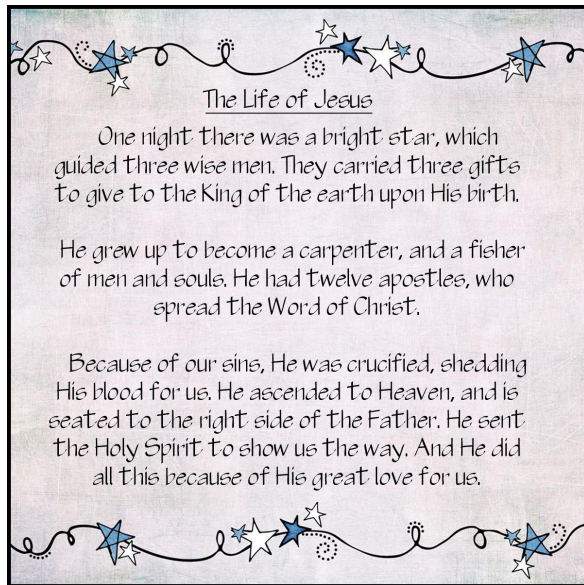 The Life of Jesus
One night there was a bright star, which
guided three wise men. They carried three gifts
to give to the King of the earth upon His birth.
He grew up to become a carpenter, and a fisher
of men and souls. He had twelve apostles, who
spread the Word of Christ.
Because of our sins, He was crucified, shedding
His blood for us. He ascended to Heaven, and is
seated to the right side of the Father. He sent
the Holy Spirit to show us the way. And He did
all this because of His great love for us.